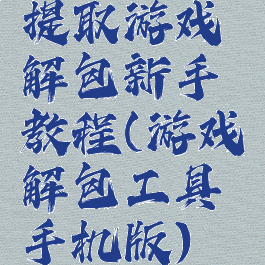 提取游戏
解包新手
教程(游戏
解包工具
手机版)